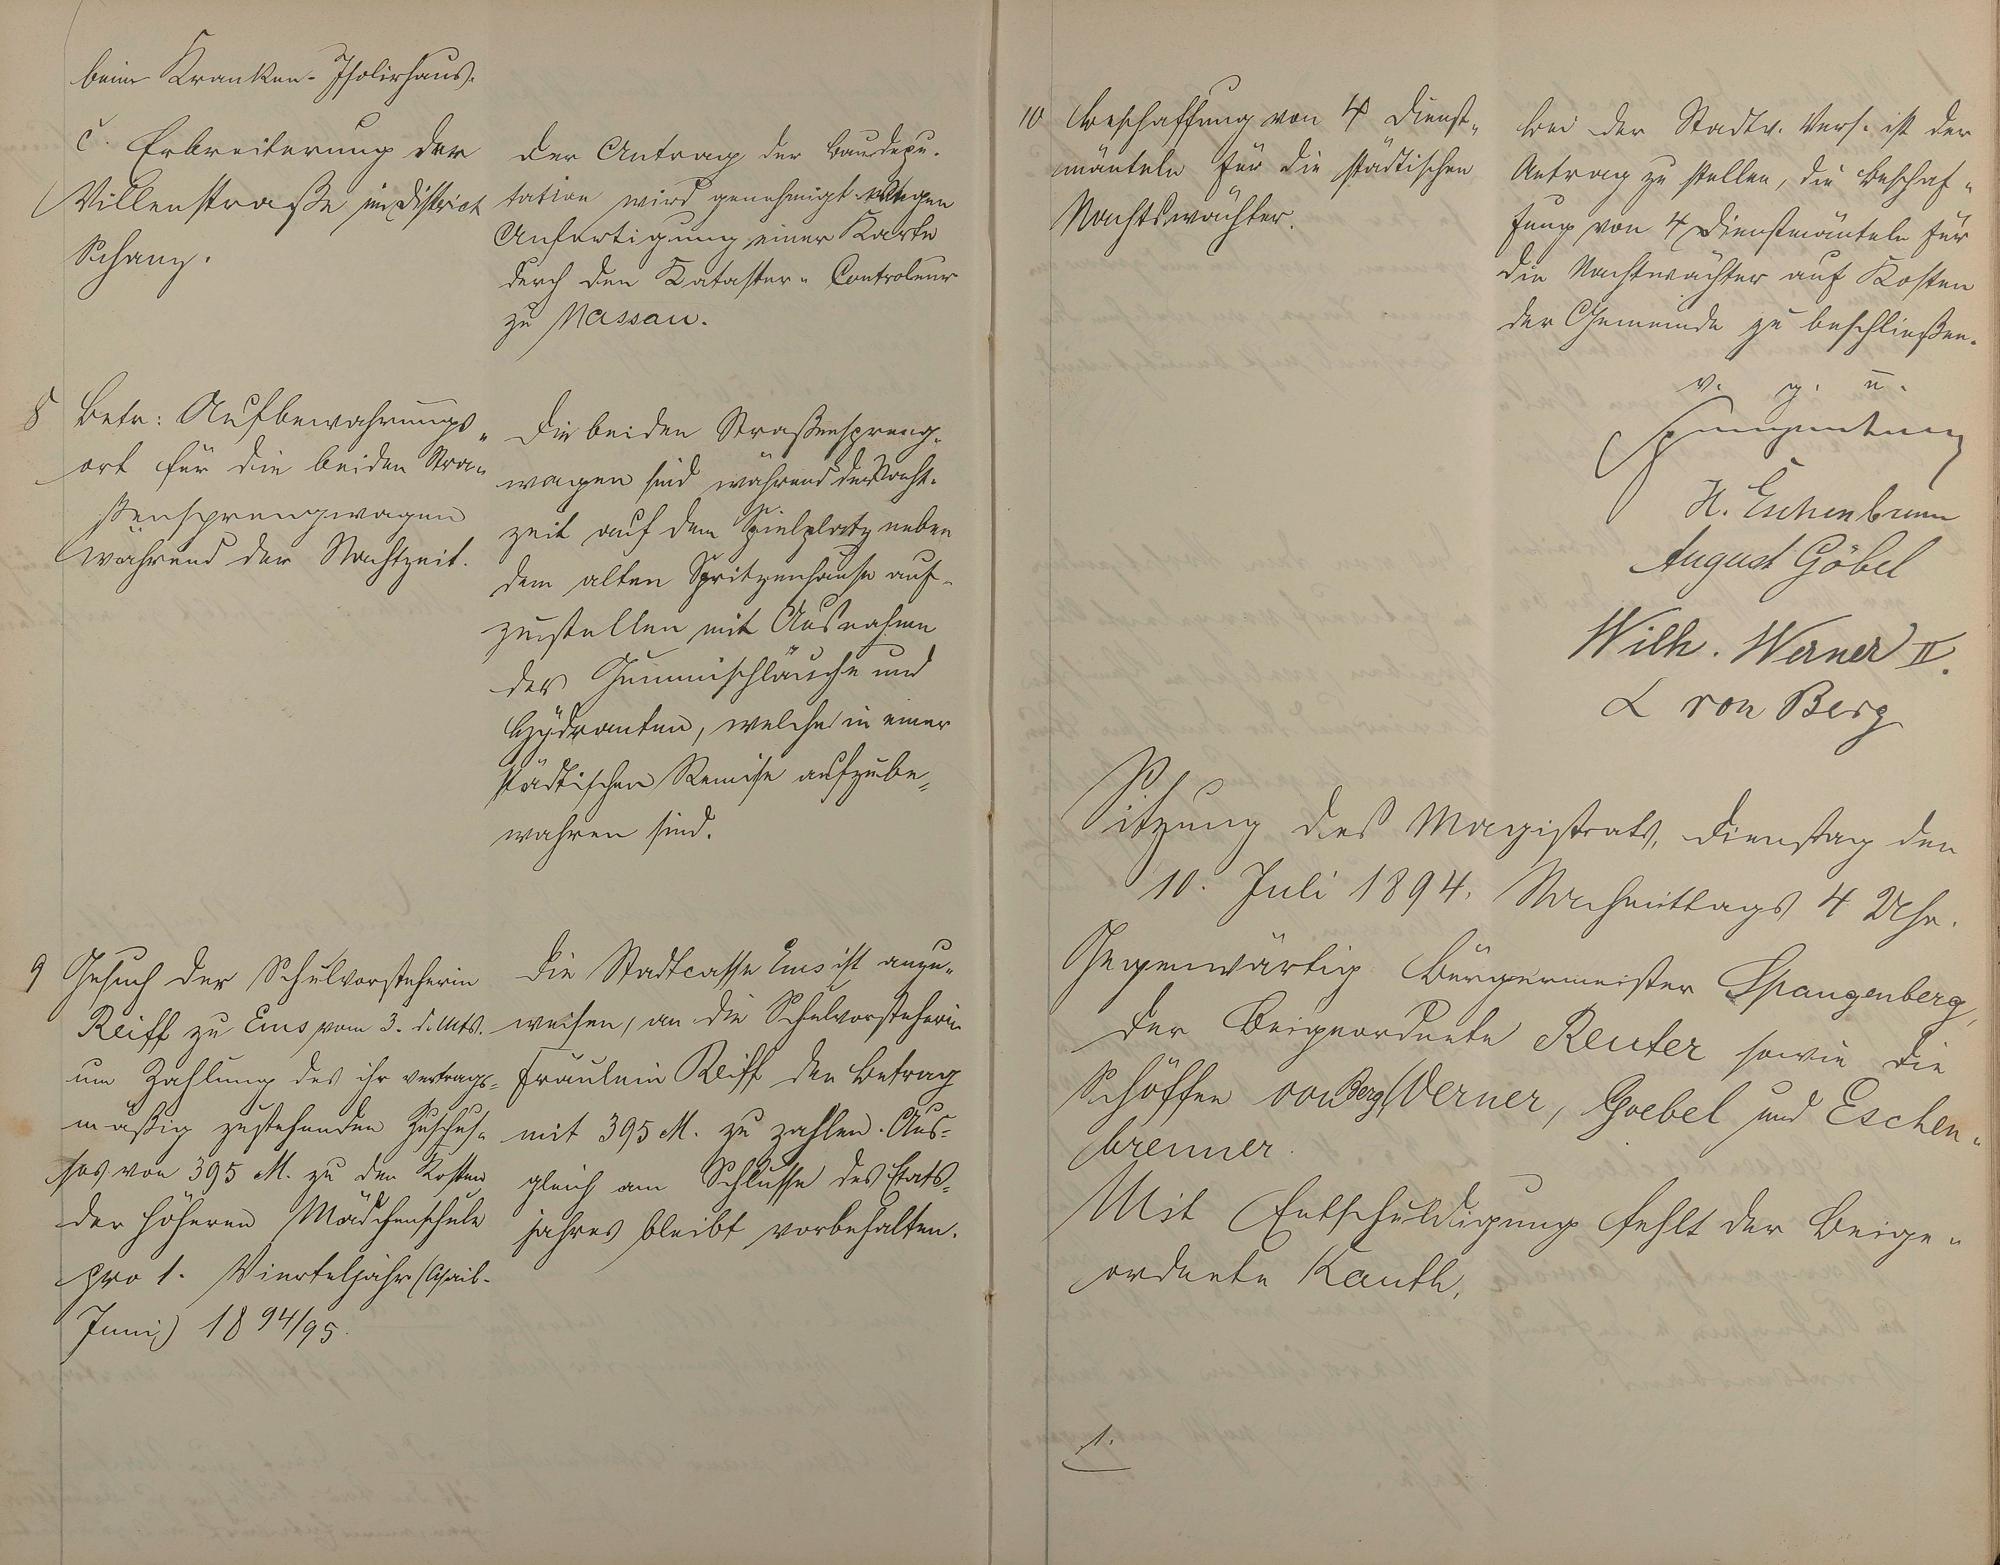 beim Kranken-Isolirhaus.
c. Erbreiterung der
Villenstraße im District
Schanz.
Der Antrag der Baudepu-
tation wird genehmigt wegen
Anfertigung einer Karte
durch den Kataster-Controleur
zu Nassau.
8 Betr: Aufbewahrungs-
ort für die beiden Stra-
ßensprengwagen
während der Nachtzeit.
Die beiden Straßenspreng-
wagen sind während der Nacht-
zeit auf dem Spielplatz neben
dem alten Spritzenhause auf-
zustellen mit Ausnahme
der Gummischläuche und
Hydranten, welche in einer
städtischen Remise aufzube-
wahren sind.
9 Gesuch der Schulvorsteherin
Reiff zu Ems vom 3. d. Mts.
um Zahlung des ihr vertrags-
mäßig zustehenden Zuschus-
ses von 395 M. zu den Kosten
der höheren Mädchenschule
pro 1. Vierteljahr (April-
Juni) 1894/95.
Die Stadtcasse Ems ist anzu-
weisen, an die Schulvorsteherin
Fräulein Reiff den Betrag
mit 395 M. zu zahlen. Aus-
gleich am Schlusse des Etats-
jahres bleibt vorbehalten.
10 Beschaffung von 4 Dienst-
mänteln für die städtischen
Nachtswächter.
Bei der Stadtv. Vers. ist der
Antrag zu stellen, die Beschaf-
fung von 4 Dienstmänteln für
die Nachtwächter auf Kosten
der Gemeinde zu beschließen.
v. g. u.
Spangenberg
H. Eschenbrenner
August Göbel
Wilh. Werner II.
L von Berg
Sitzung des Magistrats, Dienstag den
10. Juli 1894. Nachmittags 4 Uhr.
Gegenwärtig Bürgermeister Spangenberg,
der Beigeordnete Reuter sowie die
Schöffen von Berg, Werner, Goebel und Eschen-
brenner.
Mit Entschuldigung fehlt der Beige-
ordnete Kauth.
1.